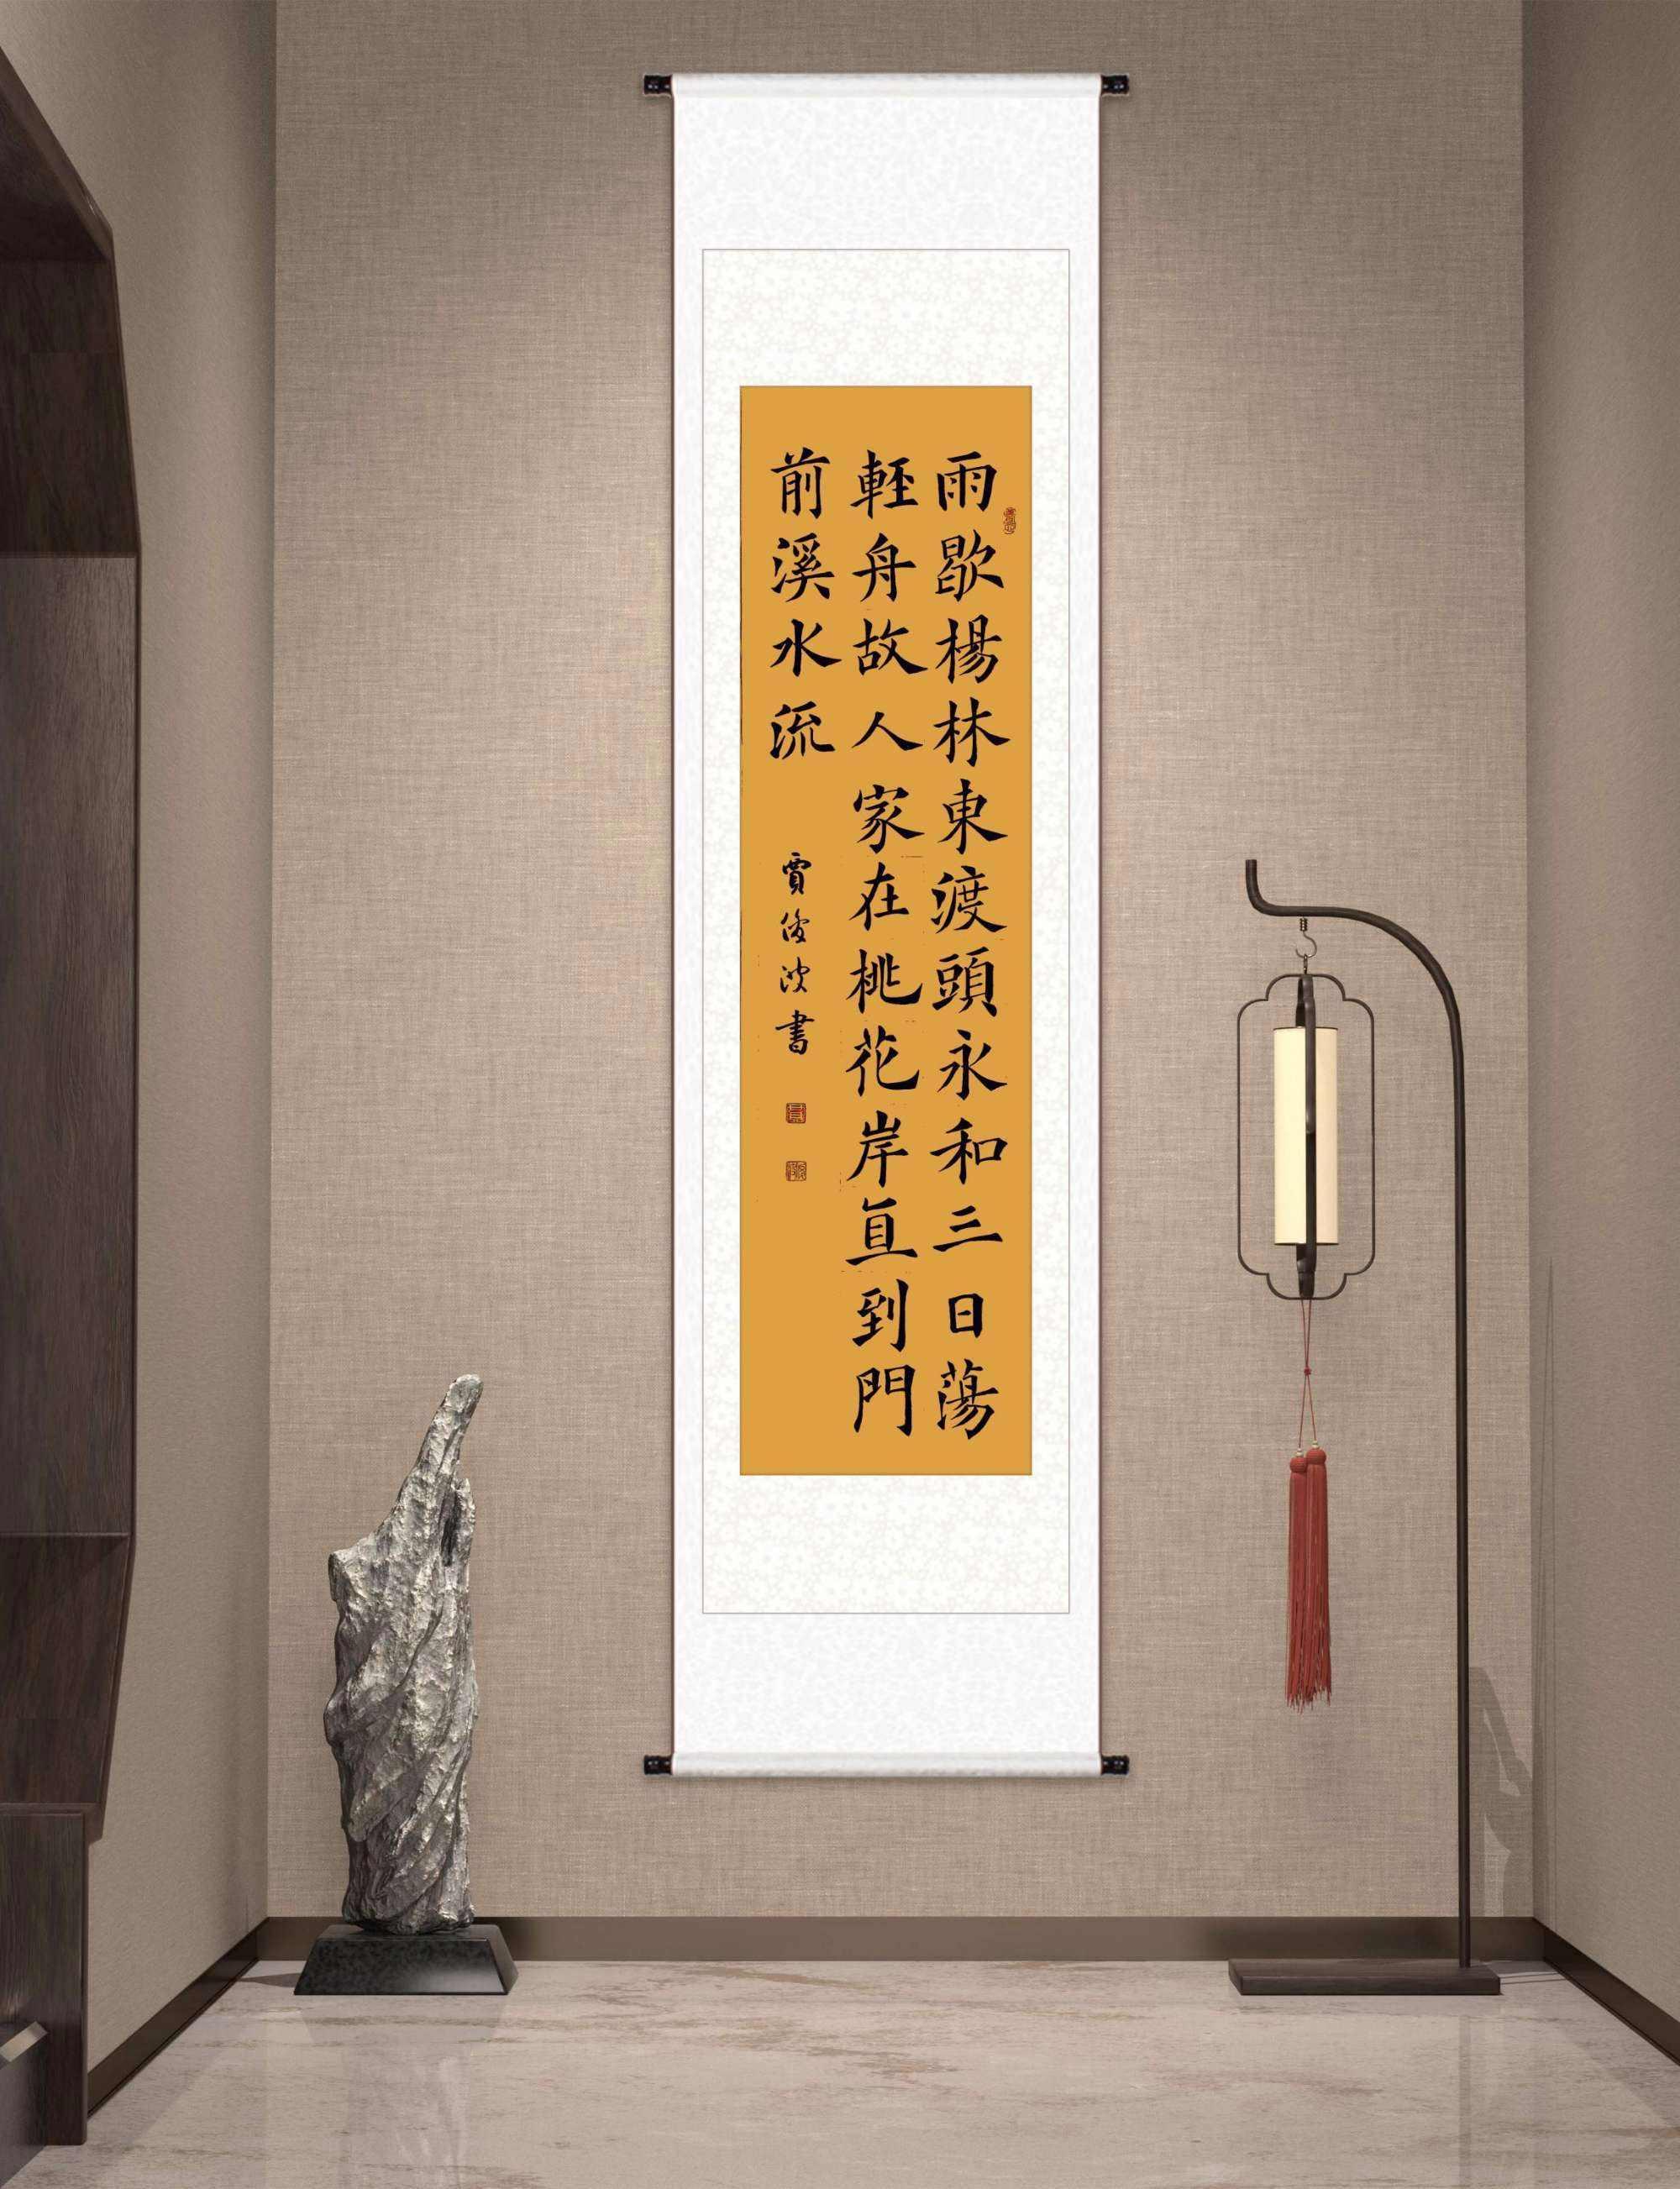 雨歇楊林東渡頭永和三日蕩
輕舟故人家在桃花岸直到門
前溪水流
賈俊波書